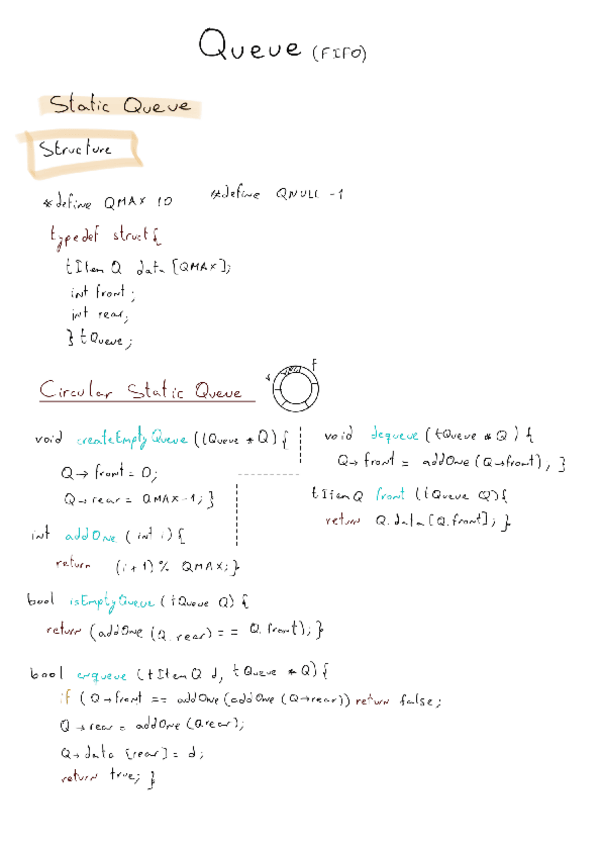 Queue (FIFO)
Static Queue
Structure
#define QMAX 10 #define QNULL -1
typedef struct{
tItemQ data[QMAX];
int front;
int rear;
} tQueue;
Circular Static Queue
r f
void createEmptyQueue(tQueue *Q){
Q→front = 0;
Q→rear = QMAX-1;}
int addOne (int i){
return (i+1)% QMAX;}
void dequeue (tQueue *Q){
Q→front = addOne(Q→front);}
tItemQ front (tQueue Q){
return Q.data[Q.front];}
bool isEmptyQueue (tQueue Q){
return (addOne (Q.rear) == Q.front);}
bool enqueue (tItemQ d, tQueue *Q){
if (Q→front == addOne(addOne(Q→rear)) return false;
Q→rear = addOne(Q→rear);
Q→data[rear] = d;
return true;}